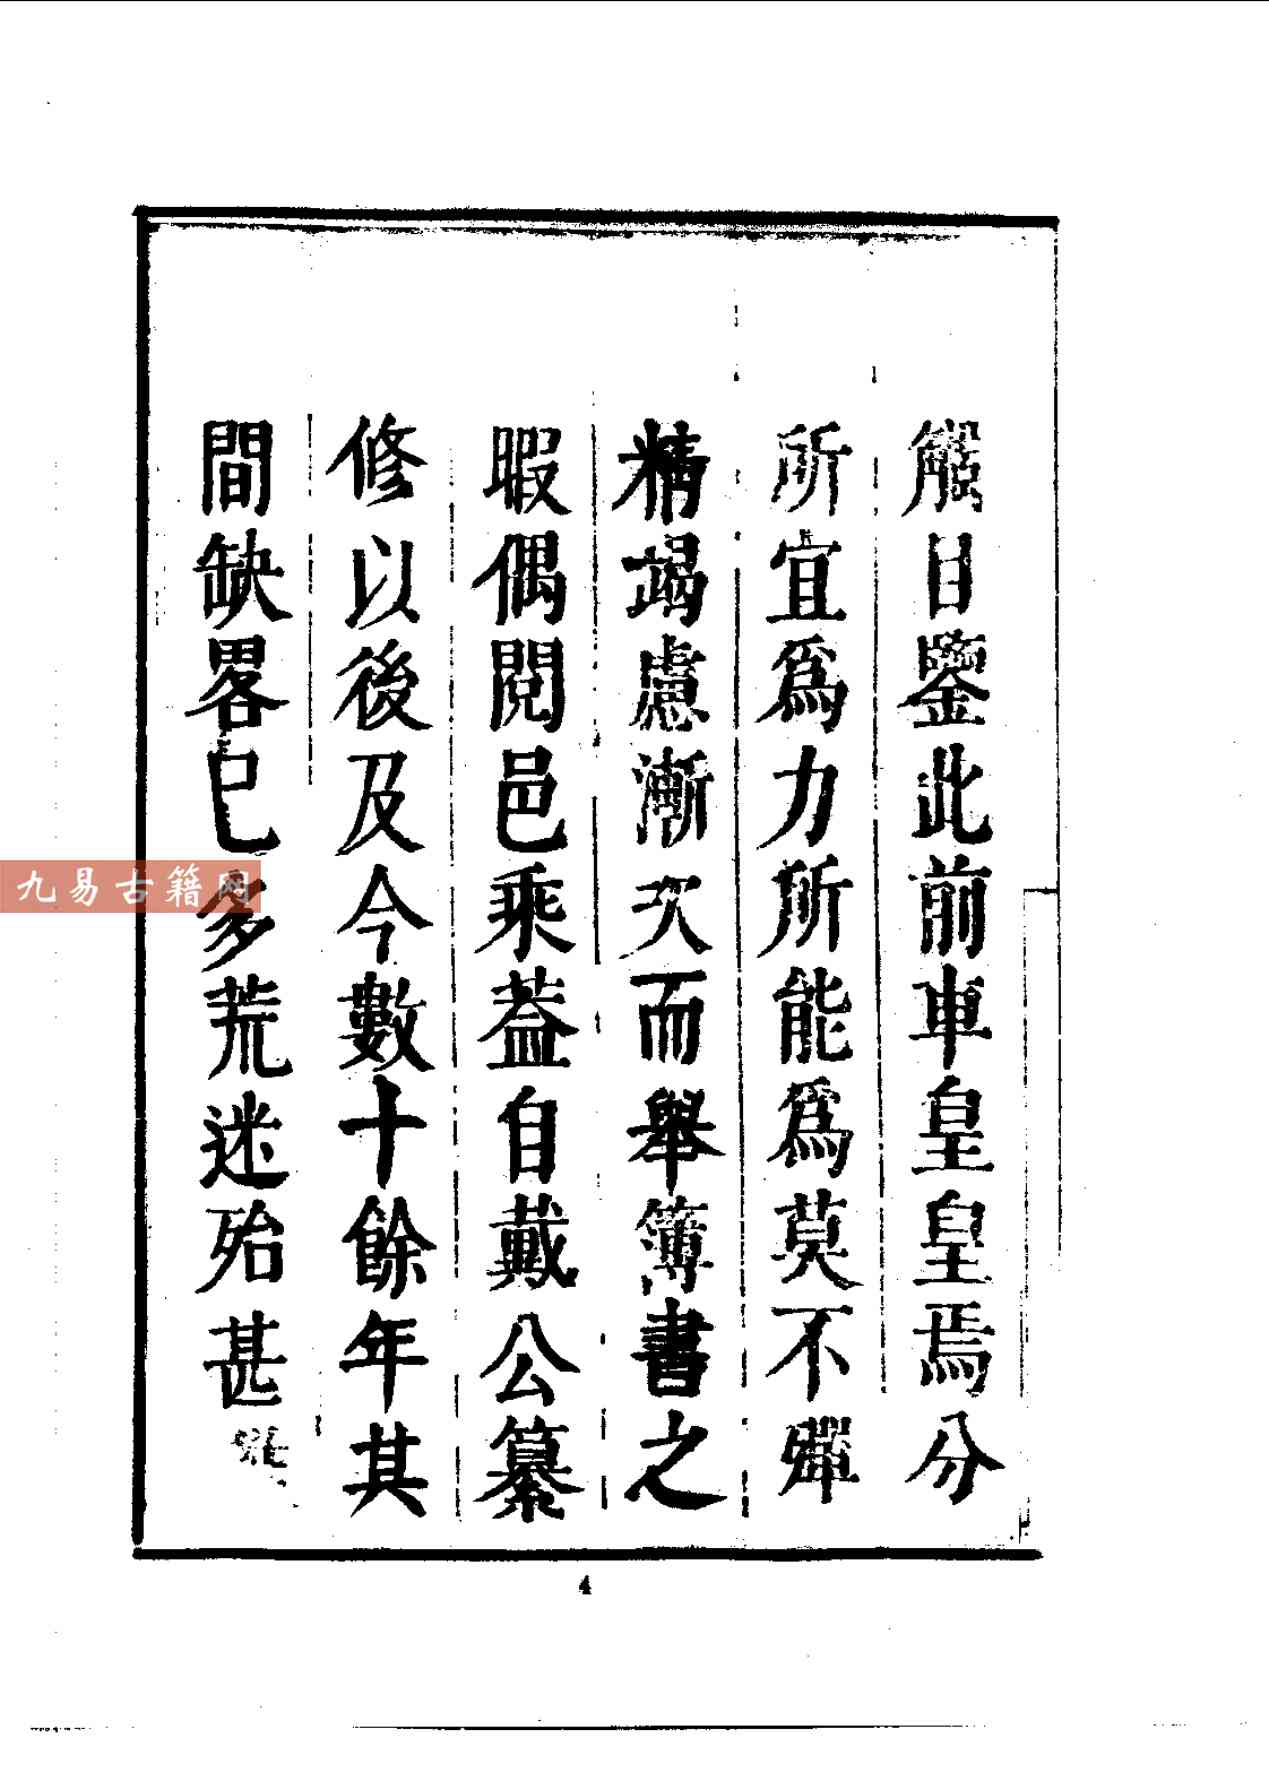 觸目鑒此前車皇皇焉分
所宜爲力所能爲莫不殫
精竭慮漸次而舉簿書之
暇偶閱邑乘葢自戴公纂
修以後及今數十餘年其
間缺畧已多荒迷殆甚
九易古籍网
4